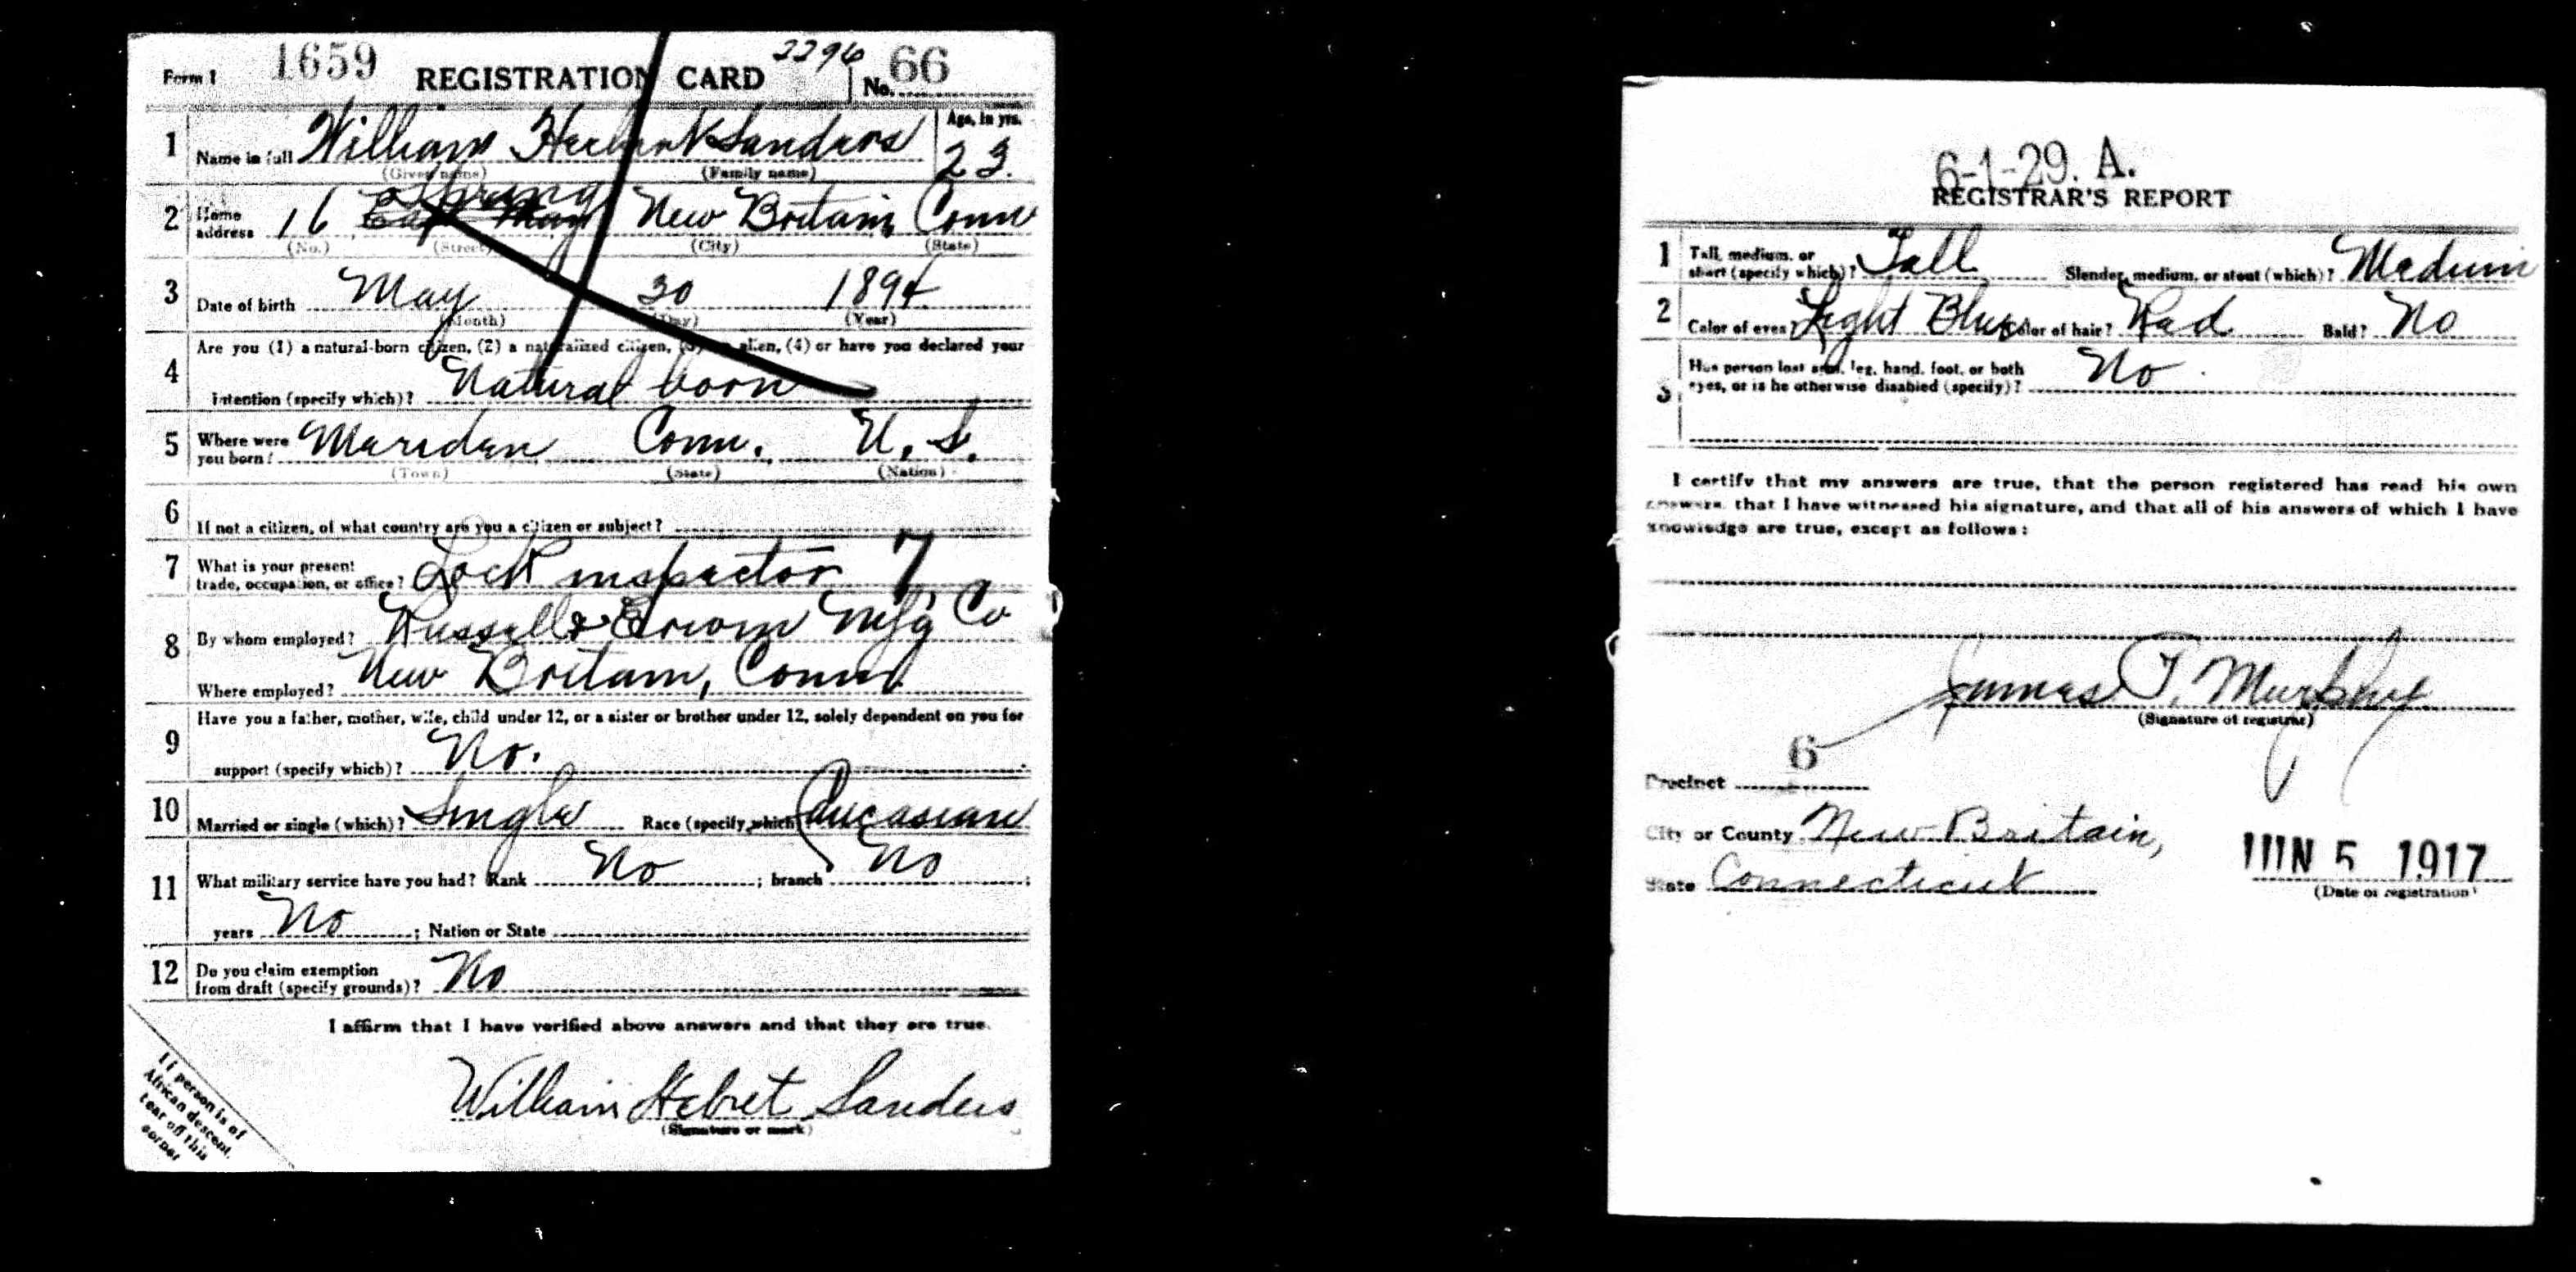 Form 1 1659 REGISTRATION CARD 2296 No. 66
1 Name in full William Herbert Sanders Age, in yrs. 23.
(Given name) (Family name)
2 Home address 16 Spring New Britain Conn
(No.) (Street) (City) (State)
3 Date of birth May 30 1894
(Month) (Day) (Year)
4 Are you (1) a natural-born citizen, (2) a naturalized citizen, (3) an alien, (4) or have you declared your
intention (specify which)? Natural born
5 Where were you born? Meriden Conn. U.S.
(Town) (State) (Nation)
6 If not a citizen, of what country are you a citizen or subject?
7 What is your present
trade, occupation, or office? Lock inspector 7
8 By whom employed? Russell & Erwin Mfg Co
Where employed? New Britain, Conn
9 Have you a father, mother, wife, child under 12, or a sister or brother under 12, solely dependent on you for
support (specify which)? No.
10 Married or single (which)? Single Race (specify which) Caucasian
11 What military service have you had? Rank No ; branch No ;
years No ; Nation or State
12 Do you claim exemption
from draft (specify grounds)? No
I affirm that I have verified above answers and that they are true.
William Hebret Sanders
(Signature or mark)
If person is of
African descent,
tear off this
corner
6-1-29. A.
REGISTRAR'S REPORT
1 Tall, medium, or
short (specify which)? Tall Slender, medium, or stout (which)? Medium
2 Color of eyes? Light Blue Color of hair? Red Bald? No
3 Has person lost arm, leg, hand, foot, or both
eyes, or is he otherwise disabled (specify)? No
I certify that my answers are true, that the person registered has read his own
answers, that I have witnessed his signature, and that all of his answers of which I have
knowledge are true, except as follows:
James T. Murphy
(Signature of registrar)
Precinct 6
City or County New Britain,
State Connecticut
JUN 5 1917
(Date of registration)